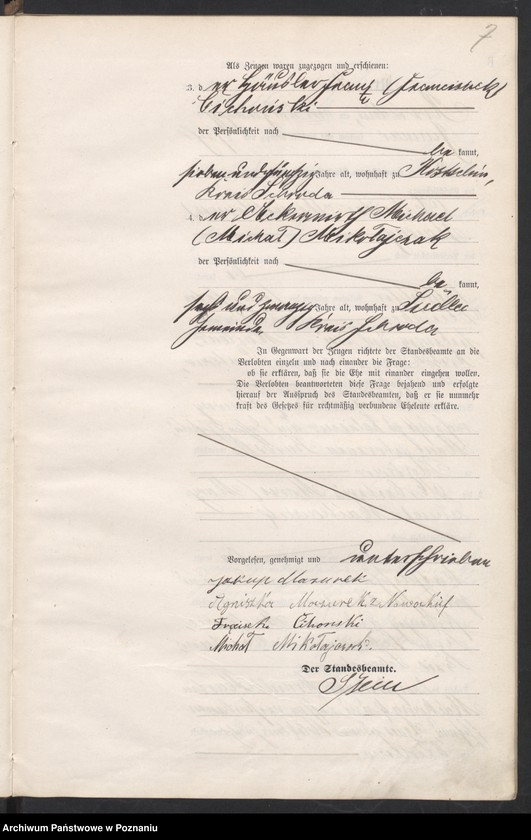 7
Als Zeugen waren zugezogen und erschienen:
3. der Häusler Franz (Franciszek)
Cichoński
der Persönlichkeit nach
be kannt,
sieben und fünfzig Jahre alt, wohnhaft zu
Kreis Schroda
4. der Ackerwirth Michael
(Michał) Mikołajczak
der Persönlichkeit nach
be kannt,
sechs und zwanzig Jahre alt, wohnhaft zu Siedlec
Gemeinde Kreis Schroda
In Gegenwart der Zeugen richtete der Standesbeamte an die
Verlobten einzeln und nach einander die Frage:
ob sie erklären, daß sie die Ehe mit einander eingehen wollen.
Die Verlobten beantworteten diese Frage bejahend und erfolgte
hierauf der Ausspruch des Standesbeamten, daß er sie nunmehr
kraft des Gesetzes für rechtmäßig verbundene Eheleute erkläre.
Vorgelesen, genehmigt und unterschrieben
Jakup Mazurek
Agniszka Mazurek z
Cihonski
Michał Mikołajczak.
Der Standesbeamte.
Archiwum Państwowe w Poznaniu